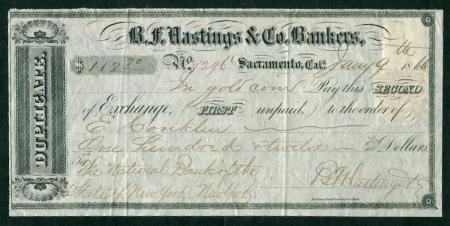 B.F. Hastings & Co. Bankers,
$112.70 No. 9296 Sacramento, Cal. Jany 9th 1866
In gold coin Pay this SECOND
of Exchange, FIRST unpaid, to the order of
E. Conklin
One hundred & twelve 70/100 Dollars
To The National Bank of the
State of New York New York B F Hastings & Co
DUPLICATE.